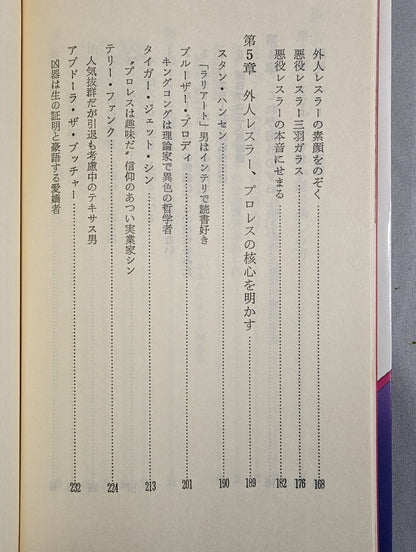 外人レスラーの素顔をのぞく……168
悪役レスラー三羽ガラス……176
悪役レスラーの本音にせまる……182
第5章 外人レスラー、プロレスの核心を明かす……189
スタン・ハンセン……190
「ラリアート」男はインテリで読書好き
ブルーザー・ブロディ……201
キングコングは理論家で異色の哲学者
タイガー・ジェット・シン……213
"プロレスは趣味だ"信仰のあつい実業家シン
テリー・ファンク……224
人気抜群だが引退も考慮中のテキサス男
アブドーラ・ザ・ブッチャー……232
凶器は生の証明と豪語する愛嬌者